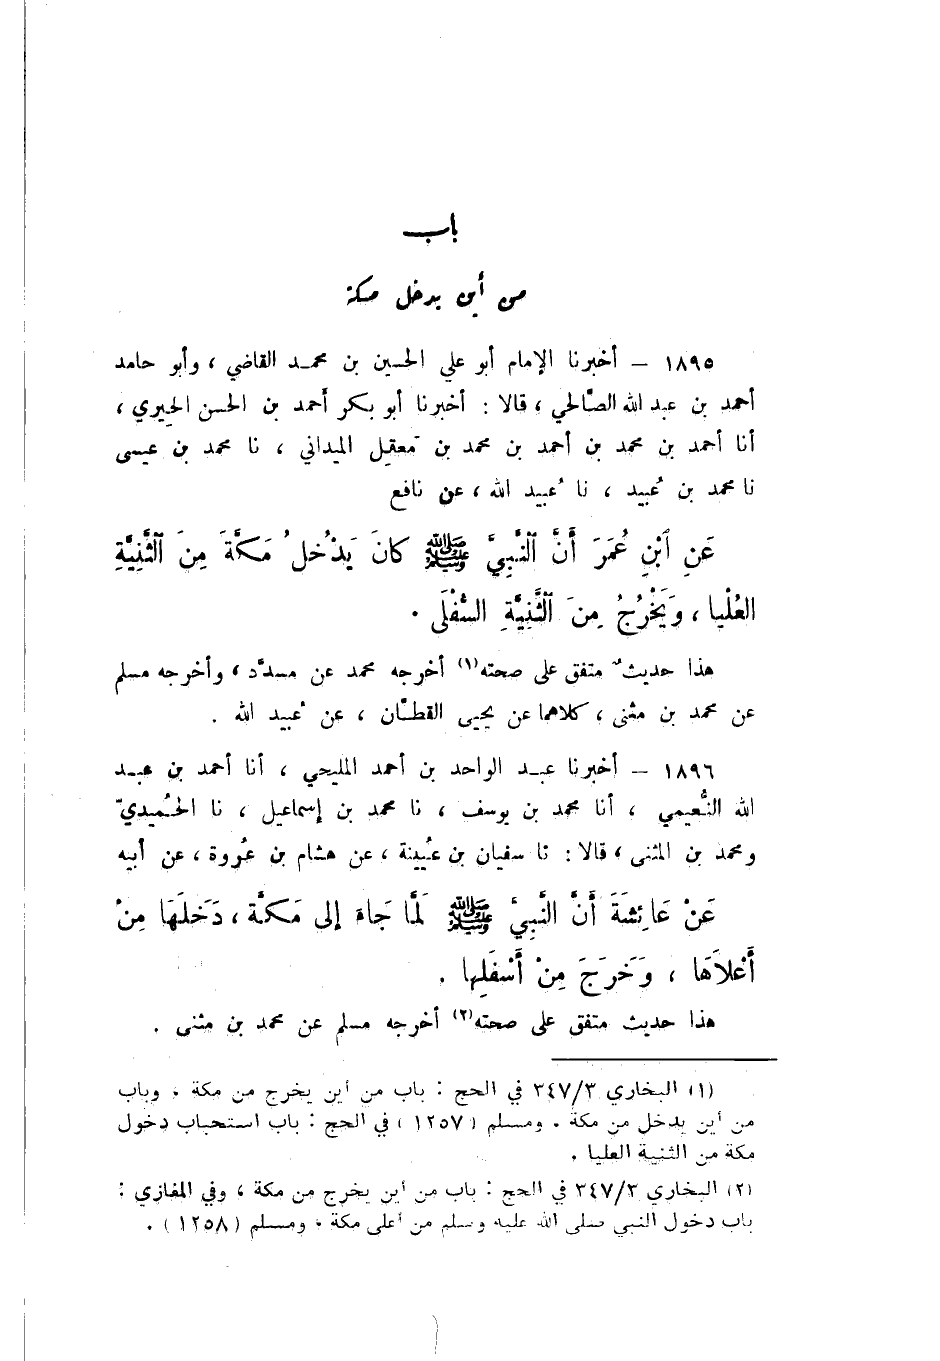 باب
من أين يدخل مكة
١٨٩٥ – أخبرنا الإمام أبو علي الحسين بن محمد القاضي ، وأبو حامد
أحمد بن عبد الله الصَّالحي ، قالا : أخبرنا أبو بكر أحمد بن الحسن الحيري ،
أنا أحمد بن محمد بن أحمد بن محمد بن مَعقِل الميداني ، نا محمد بن عيسى
نا محمد بن عُبيد ، نا عُبيد الله ، عن نافع
عَنِ ٱبْنِ عُمَرَ أَنَّ ٱلنَّبِيَّ ﷺ كانَ يَدْخُلُ مَكَّةَ مِنَ ٱلثَّنِيَّةِ
العُلْيا ، وَيَخْرُجُ مِنَ ٱلثَّنِيَّةِ السُّفْلَى .
هذا حديثٌ متفق على صحته (١) أخرجه محمد عن مسدَّد ، وأخرجه مسلم
عن محمد بن مثنى ، كلاهما عن يحيى القطَّان ، عن عُبيد الله .
١٨٩٦ – أخبرنا عبد الواحد بن أحمد المليحي ، أنا أحمد بن عبد
الله النُّعيمي ، أنا محمد بن يوسف ، نا محمد بن إسماعيل ، نا الحُميديّ
ومحمد بن المثنى ، قالا : نا سفيان بن عُيينة ، عن هشام بن عُروة ، عن أبيه
عَنْ عَائِشَةَ أَنَّ النَّبِيَّ ﷺ لَمَّا جَاءَ إلى مَكَّةَ ، دَخَلَهَا مِنْ
أَعْلاَهَا ، وَخَرَجَ مِنْ أَسْفَلِها .
هذا حديث متفق على صحته (٢) أخرجه مسلم عن محمد بن مثنى .
(١) البخاري ٣٤٧/٣ في الحج : باب من أين يخرج من مكة ، وباب
من أين يدخل من مكة . ومسلم (١٢٥٧) في الحج : باب استحباب دخول
مكة من الثنية العليا .
(٢) البخاري ٣٤٧/٣ في الحج : باب من أين يخرج من مكة ، وفي المغازي :
باب دخول النبي صلى الله عليه وسلم من أعلى مكة ، ومسلم (١٢٥٨) .